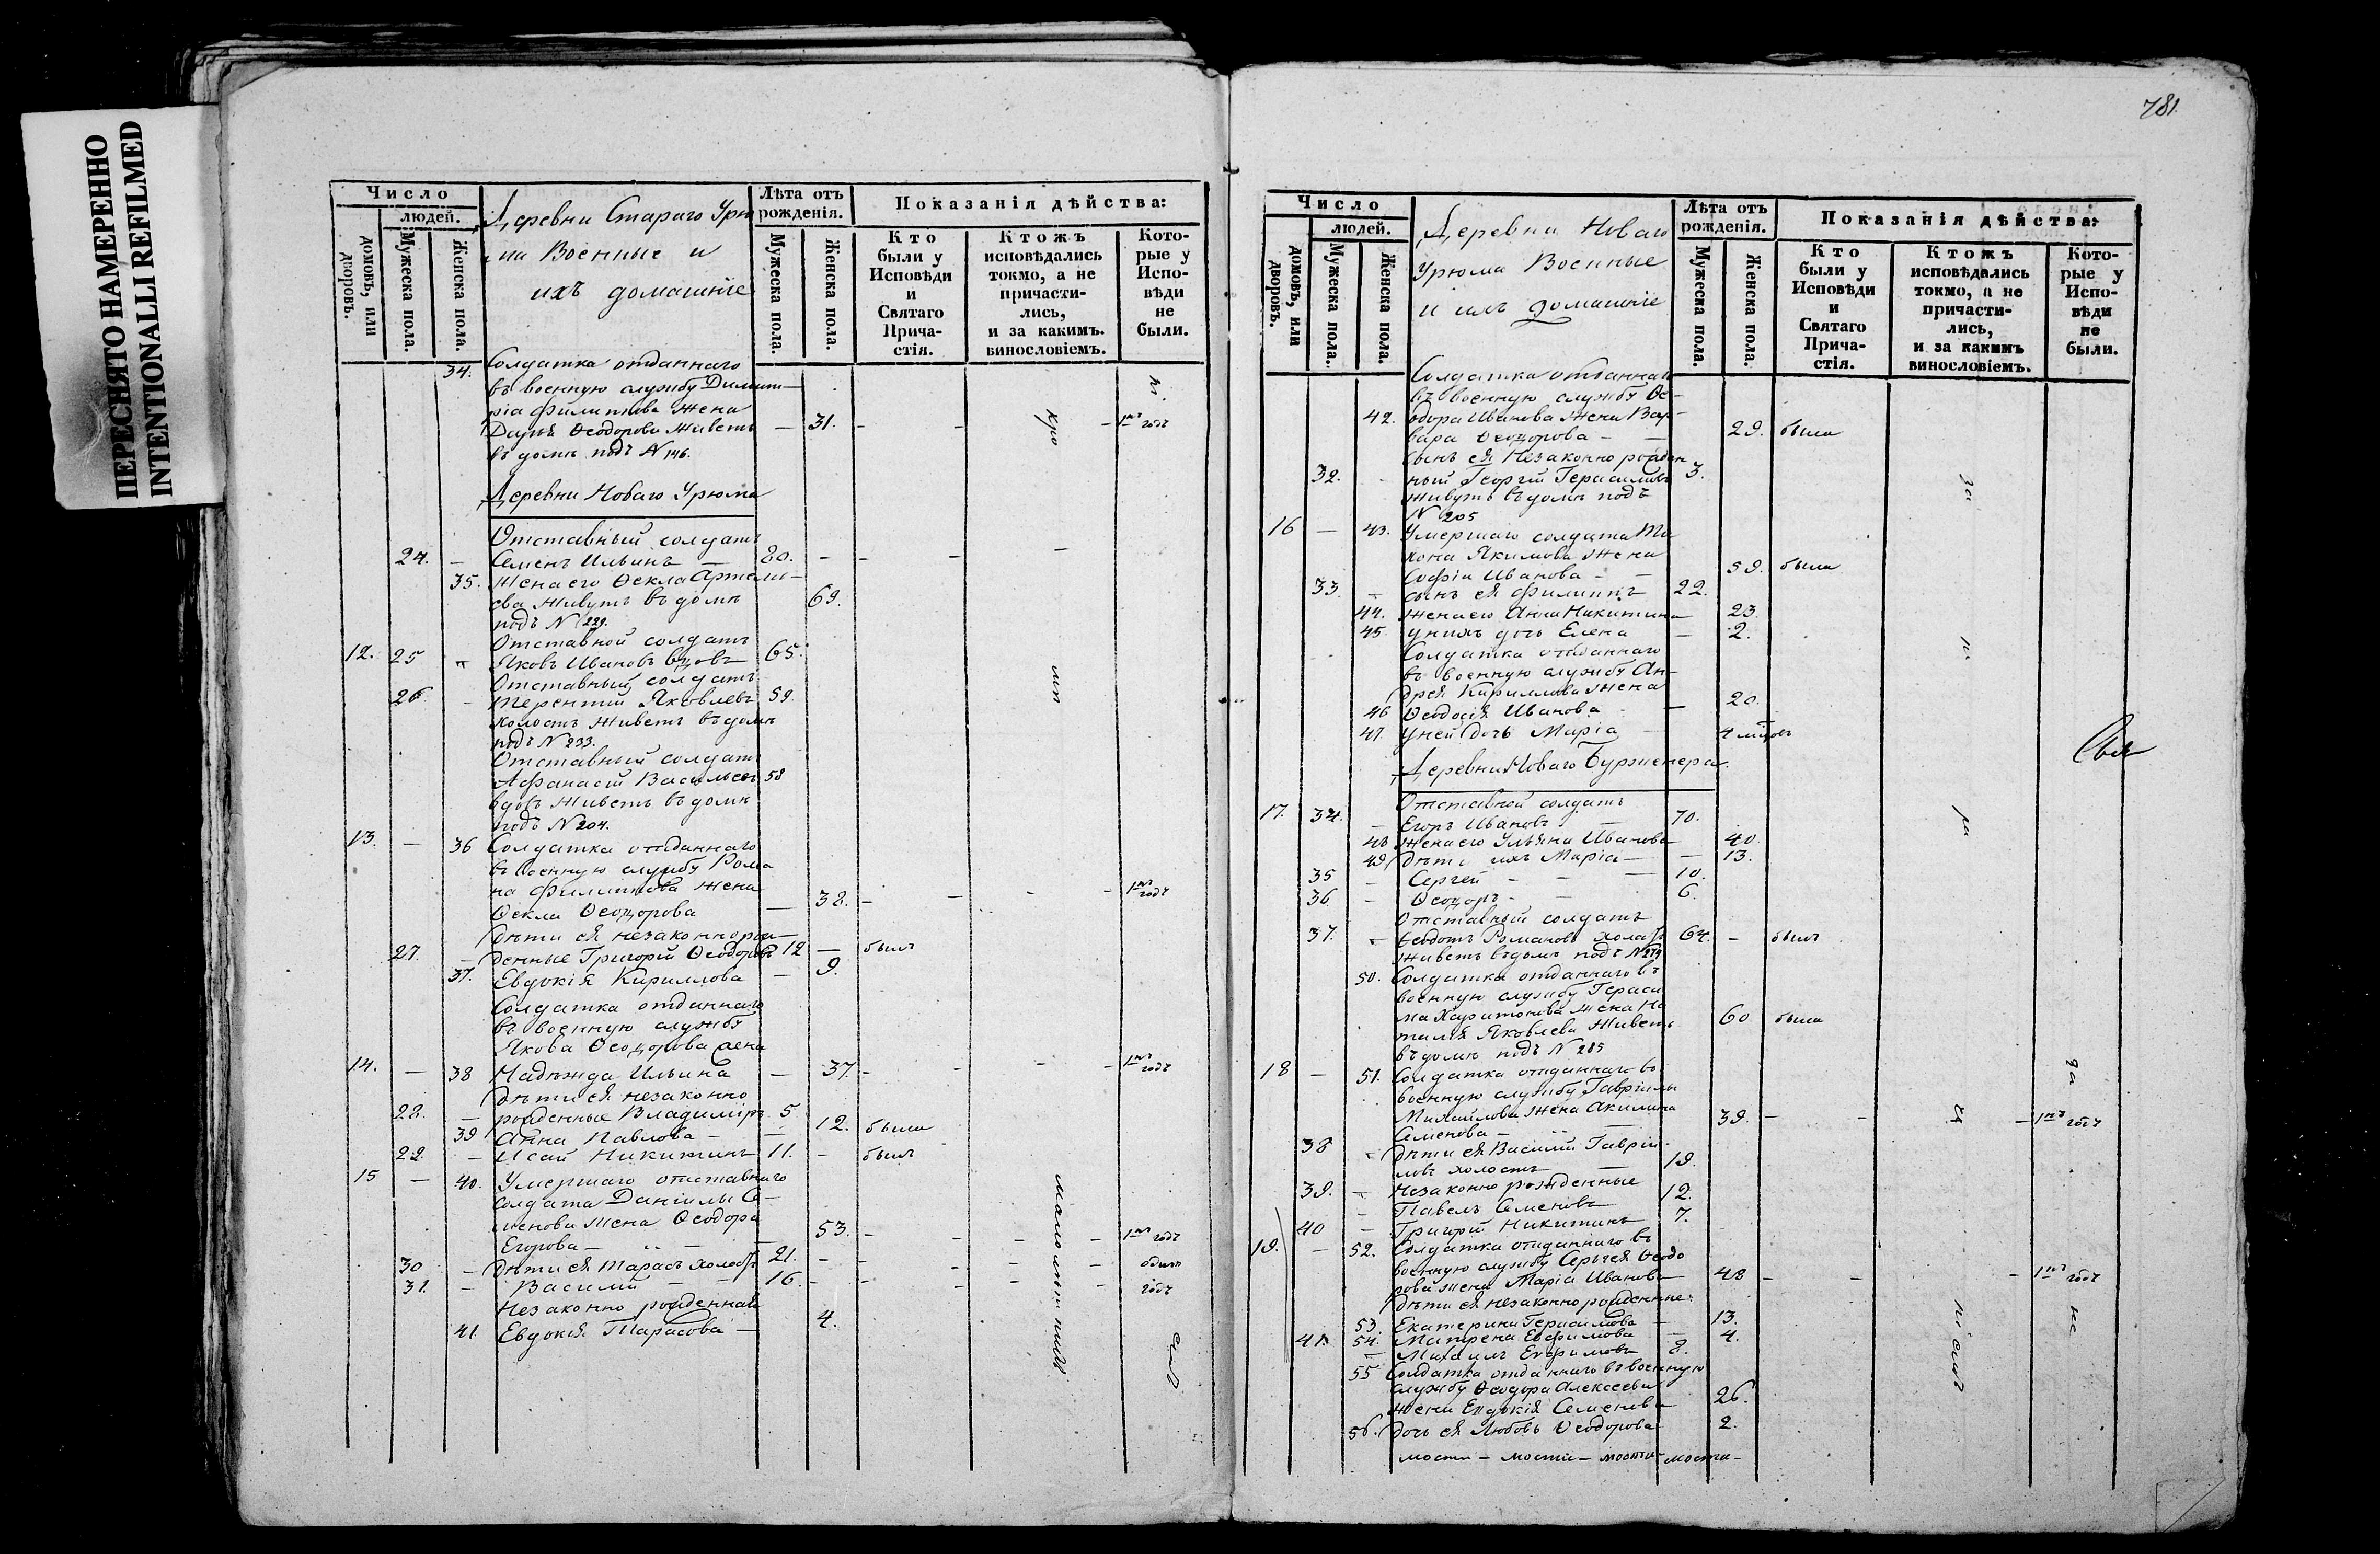 ПЕРЕСНЯТО НАМЕРЕННО
INTENTIONALLI REFILMED
Число
людей.
домовъ, или дворовъ.
Мужеска пола.
Женска пола.
Деревни Стараго Урю
ма Военные и
ихъ домашніе
Лѣта отъ рожденія.
Мужеска пола.
Женска пола.
Показанія дѣйства:
Кто были у Исповѣди и Святаго Прича-стія.
Ктожъ исповѣдались токмо, а не причасти-лись, и за какимъ. винословіемъ.
Кото-рые у Испо-вѣди не были.
34. Солдатка отданнаго
въ военную службу Димит-
рія Филипова жена
Дарья Ѳеодорова живетъ — 31. - - - 1нъ годъ
въ домѣ подъ N 146.
Деревни Новаго Урюма
Отставный солдатъ
24. - Семенъ Ильинъ — 80. - - - -
35. Жена его Ѳекла Артемь-
ева живутъ въ домѣ 69.
подъ N 229.
Отставной солдатъ
12. 25 " Яковъ Ивановъ вдовъ 65.
Отставный солдатъ
26. - Терентій Яковлевъ 59.
холостъ живетъ въ домѣ
подъ N 233.
Отставный солдатъ
Афанасій Васильевъ 58
вдовъ живетъ въ домѣ
подъ N 204.
13. - 36 Солдатка отданнаго
въ военную службу Рома
на Филипова жена
Ѳекла Ѳеодорова — 38. - - - - 1нъ годъ
Дѣти ея незаконнорож-
27. - денные Григорій Ѳеодоровъ 12 — былъ
37. Евдокія Кириллова — 9.
Солдатка отданнаго
въ военную службу
Якова Ѳеодорова жена
14. — 38 Надежда Ильина — 37. - - - - 1нъ годъ
Дѣти ея незаконно
28. — рожденные Владиміръ 5
39 Анна Павлова - — 12. была
29. - Исай Никитинъ 11. - былъ
15 — 40. Умершаго отставнаго
солдата Даніилы Се-
менова жена Ѳеодора
Егорова — 53. - - - - 1нъ годъ
30 - Дѣти ея Тарасъ холостъ 21. - - - - - одинъ
31. - Василій — 16. - - - - - годъ
Незаконно рожденная
41. Евдокія Тарасова — 4.
малолѣтствомъ
781.
Число
людей.
домовъ, или дворовъ.
Мужеска пола.
Женска пола.
Деревни Новаго
Урюма Военные
и ихъ домашніе
Лѣта отъ рожденія.
Мужеска пола.
Женска пола.
Показанія дѣйства:
Кто были у Исповѣди и Святаго Прича-стія.
Ктожъ исповѣдались токмо, а не причасти-лись, и за какимъ винословіемъ.
Кото-рые у Испо-вѣди не были.
Солдатка отданнаго
въ военную службу Ѳе-
42. одора Иванова жена Вар-
вара Ѳеодорова - — 29. была
Сынъ ея Незаконно рожден
32. - ный Георгій Герасимовъ 3.
живутъ въ домѣ подъ
N 205
16 — 43. Умершаго солдата Ти
хона Якимова жена
Софія Иванова - — 59. была
33. - сынъ ея Филиппъ 22.
44. жена его Анна Никитина 23.
45. у нихъ дочь Елена — 2.
Солдатка отданнаго
въ военную службу Ан-
дрея Кириллова жена
46 Ѳеодосія Иванова — 20.
47. у ней дочь Марія 4 мѣсяцовъ
Деревни Новаго Буртенера
Отставной солдатъ
17. 34. — Егоръ Ивановъ — 70.
48 жена его Ульяна Иванова 40
49. Дѣти ихъ Марія — — 13.
35 — Сергей - - — 10.
36 - Ѳеодоръ - - 6.
Отставный солдатъ
37. - Ѳеодотъ Романовъ холостъ 64. - былъ
живетъ въ домѣ подъ N 279
50. Солдатка отданнаго въ
военную службу Гераси
ма Харитонова жена На
талія Яковлева живетъ 60 была
въ домѣ подъ N 285
18 — 51. Солдатка отданнаго въ
военную службу Гавріилы
Михайлова жена Акилина
Семенова — 39. - - - 1нъ годъ
38 - Дѣти ея Василій Гавріи-
ловъ холостъ — 19.
39. - Незаконно рожденные
- Павелъ Семеновъ 12.
40 — Григорій Никитинъ 7.
19. — 52. Солдатка отданнаго въ
военную службу Сергея Ѳеодо
рова жена Марія Иванова 48 - - - 1нъ годъ
Дѣти ея незаконно рожденные:
53. Екатерина Герасимова — 13.
54. Матрена Ефимова — 4.
41. — Михаилъ Ефимовъ 8.
55 Солдатка отданнаго въ военную
службу Ѳеодора Алексеева
жена Евдокія Семенова 26.
56. Дочь ея Любовь Ѳеодорова 2.
мости - мости - мости - мости -